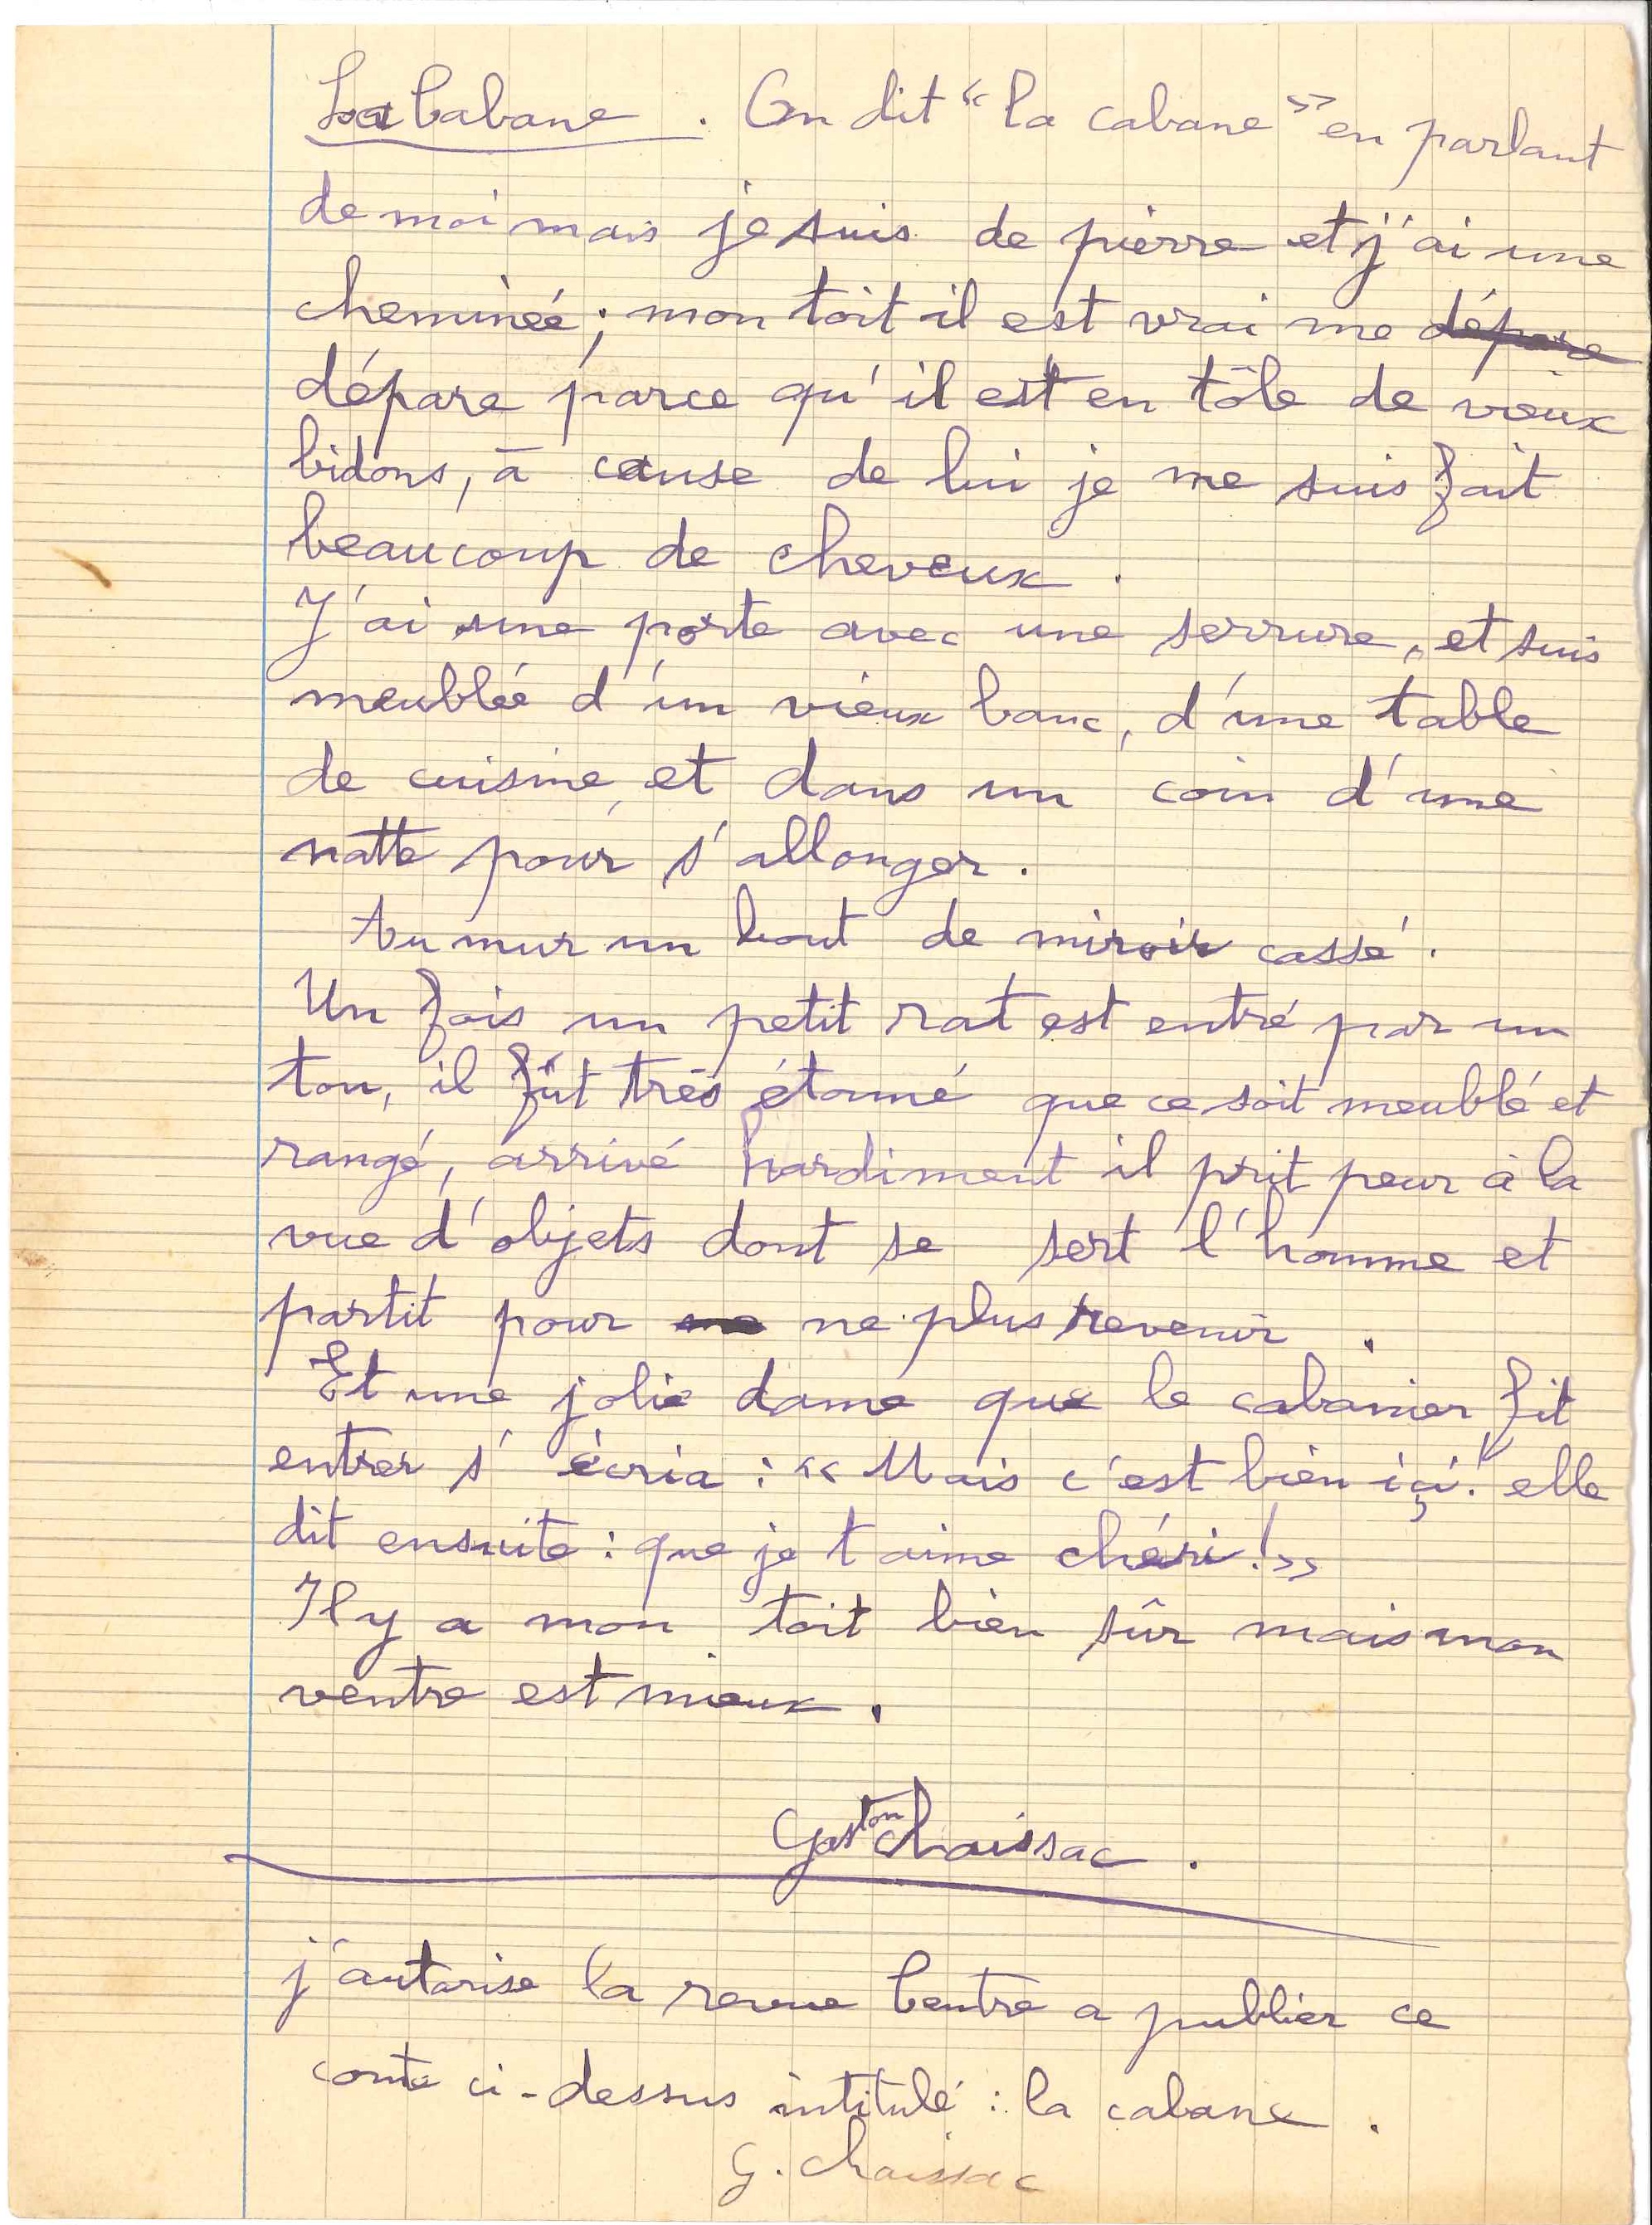 La Cabane. On dit "la cabane" en parlant
de moi mais je suis de pierre et j'ai une
cheminée; mon toit il est vrai me dépare
dépare parce qu'il est en tôle de vieux
bidons, à cause de lui je me suis fait
beaucoup de cheveux.
J'ai une porte avec une serrure, et suis
meublée d'un vieux banc, d'une table
de cuisine, et dans un coin d'une
natte pour s'allonger.
Au mur un bout de miroir cassé.
Un fois un petit rat est entré par un
tou, il fût très étonné que ce soit meublé et
rangé, arrivé hardiment il prit peur à la
vue d'objets dont se sert l'homme et
partit pour ne plus revenir.
Et une jolie dame que le cabanier fit
entrer s'écria : « Mais c'est bien içi! elle
dit ensuite : que je t'aime chéri! »
Il y a mon toit bien sûr mais mon
ventre est mieux.
Gaston Chaissac.
j'autorise la revue Centre a publier ce
conte ci-dessus intitulé : la cabane.
G. Chaissac